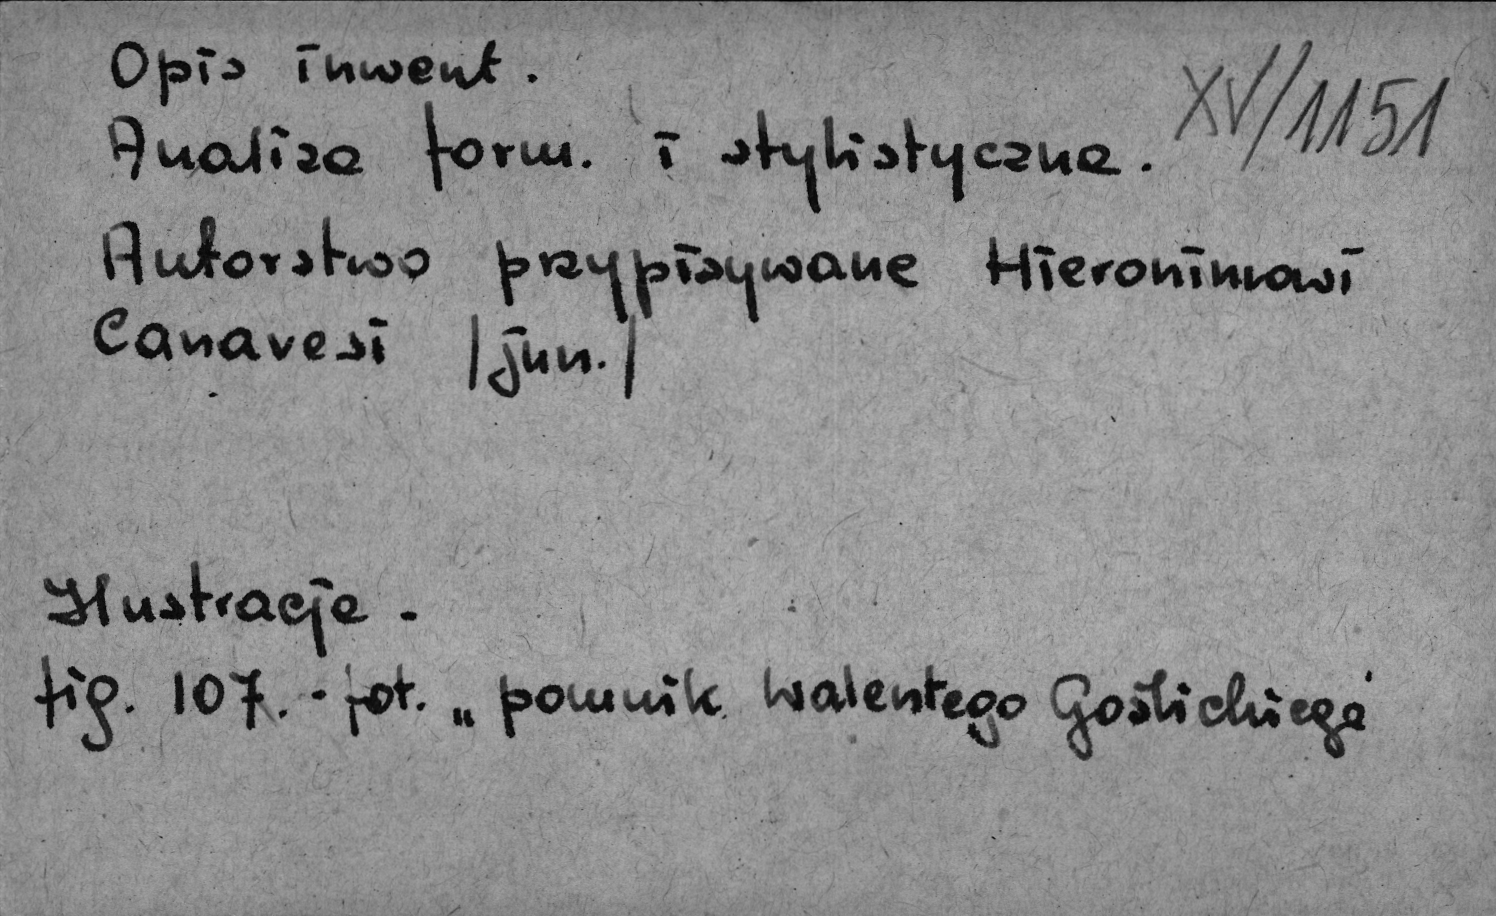 Opis inwent.
XV/1151
Analiza form. i stylistyczna.
Autorstwo przypisywane Hieronimowi
Canavesi /jun./
Ilustracje -
fig. 107. - fot. „pomnik Walentego Goślickiego"